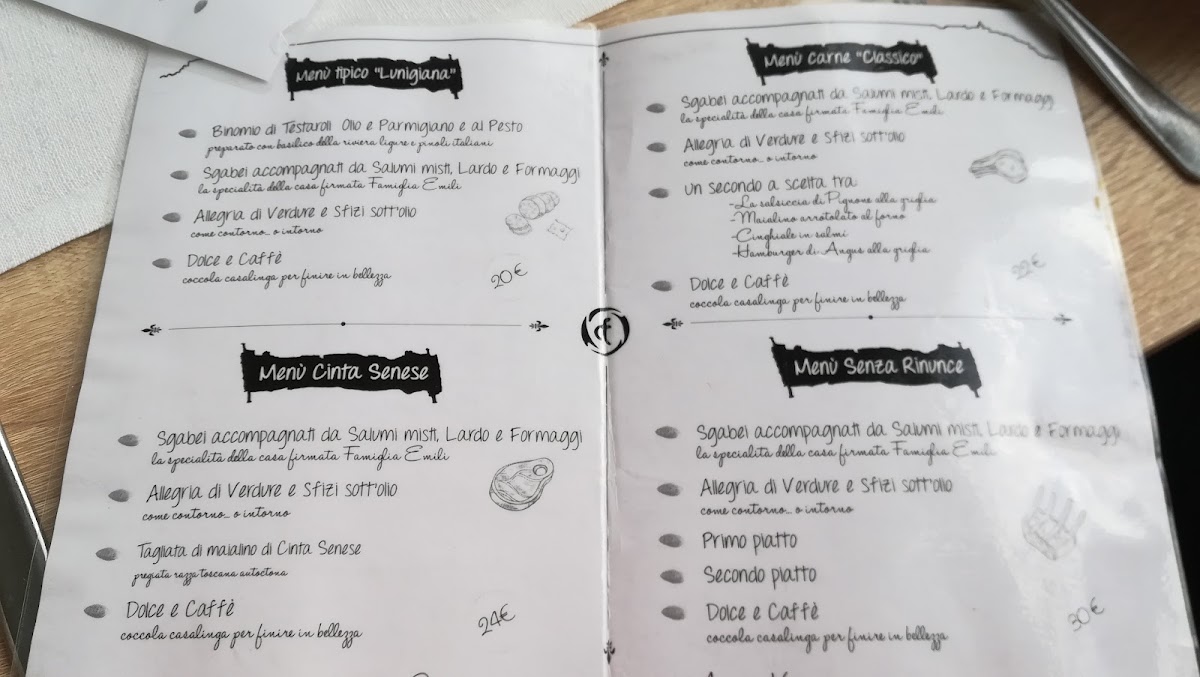 Menù tipico "Lunigiana"
Binomio di Testaroli Olio e Parmigiano e al Pesto
preparato con basilico della riviera ligure e pinoli italiani
Sgabei accompagnati da Salumi misti, Lardo e Formaggi
la specialità della casa firmata Famiglia Emili
Allegria di Verdure e Sfizi sott'olio
come contorno... o intorno
Dolce e Caffè
coccola casalinga per finire in bellezza
20€
Menù Carne "Classico"
Sgabei accompagnati da Salumi misti, Lardo e Formaggi
la specialità della casa firmata Famiglia Emili
Allegria di Verdure e Sfizi sott'olio
come contorno... o intorno
un secondo a scelta tra
-La salsiccia di Pignone alla griglia
-Maialino arrotolato al forno
-Cinghiale in salmi
-Hamburger di Angus alla griglia
22€
Dolce e Caffè
coccola casalinga per finire in bellezza
Menù Cinta Senese
Sgabei accompagnati da Salumi misti, Lardo e Formaggi
la specialità della casa firmata Famiglia Emili
Allegria di Verdure e Sfizi sott'olio
come contorno... o intorno
Tagliata di maialino di Cinta Senese
pregiata razza toscana autoctona
Dolce e Caffè
coccola casalinga per finire in bellezza
24€
Menù Senza Rinunce
Sgabei accompagnati da Salumi misti, Lardo e Formaggi
la specialità della casa firmata Famiglia Emili
Allegria di Verdure e Sfizi sott'olio
come contorno... o intorno
Primo piatto
Secondo piatto
Dolce e Caffè
coccola casalinga per finire in bellezza
30€